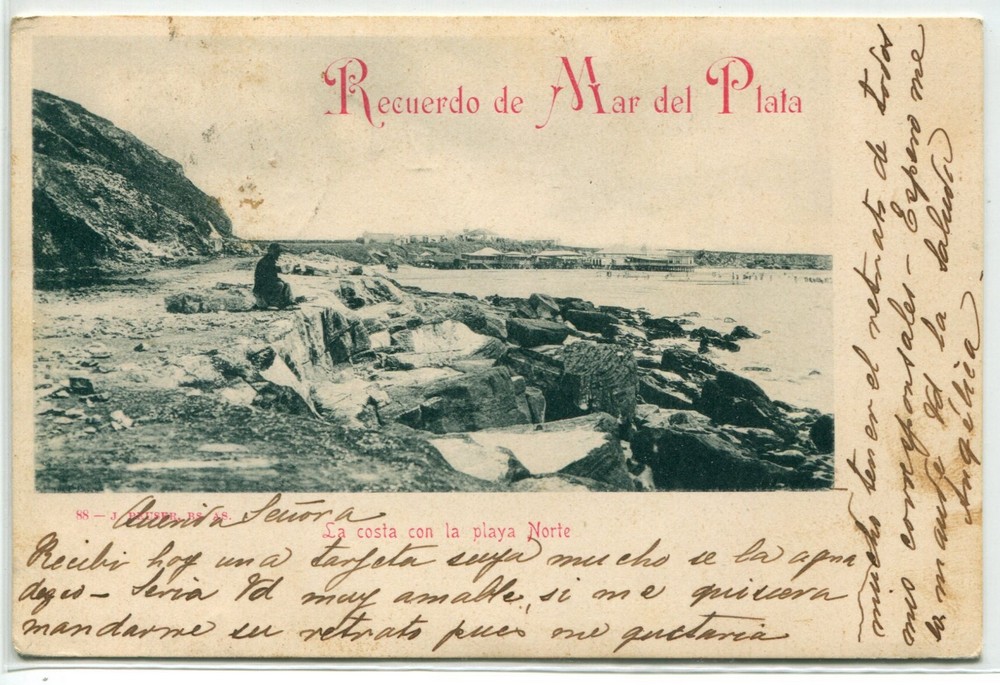 Recuerdo de Mar del Plata
88 — J. PEUSER, BS. AS.
La costa con la playa Norte
Querida Señora
Recibi hoy una targeta suya mucho se la agra
dezco – Seria Vd muy amable, si me quisiera
mandarme su retrato pues me gustaria
mucho tener el retrato de todos
mis corresponsales – Espero me
lo mande Vd la saluda